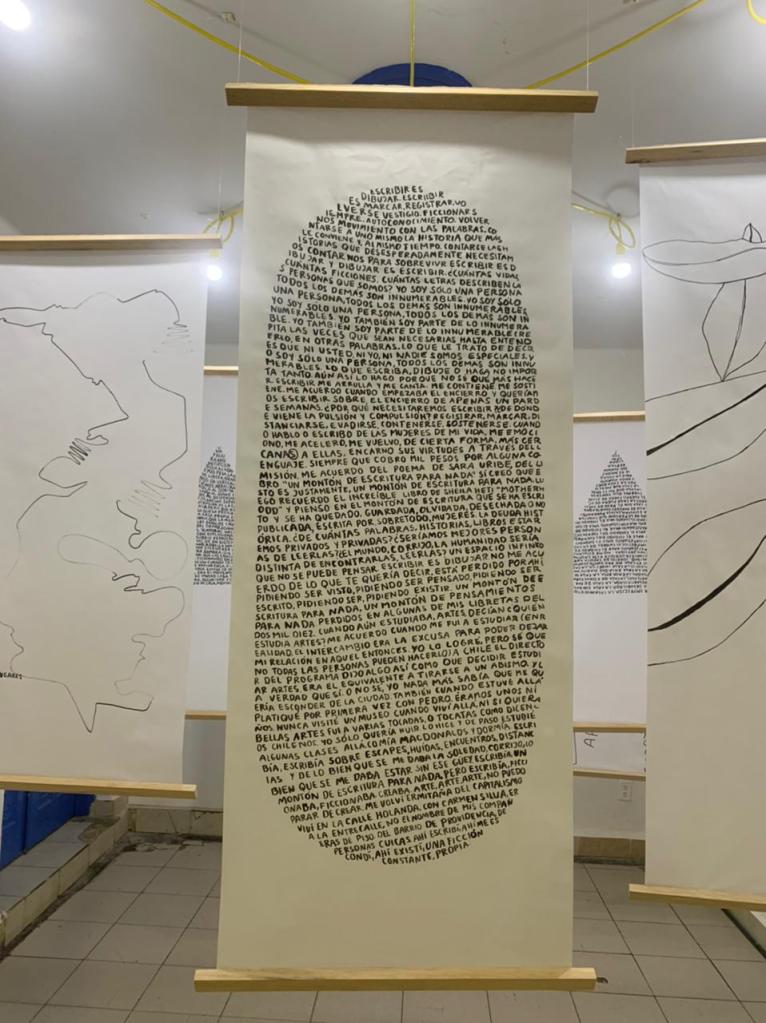 ESCRIBIR ES
DIBUJAR. ESCRIBIR
ES MARCAR, REGISTRAR. VO
LVERSE VESTIGIO. FICCIONAR S
IEMPRE. AUTOCONOCIMIENTO. VOLVER
NOS MOVIMIENTO CON LAS PALABRAS. CO
NTARSE A UNO MISMO LA HISTORIA QUE MÁS
LE CONVIENE Y, AL MISMO TIEMPO, CONTARCE LAS H
ISTORIAS QUE DESESPERADAMENTE NECESITAM
OS CONTARNOS PARA SOBREVIVIR ESCRIBIR ES D
IBUJAR Y DIBUJAR ES ESCRIBIR. ¿CUÁNTAS VIDAS
CUÁNTAS FICCIONES. CUÁNTAS LETRAS DESCRIBEN LA
S PERSONAS QUE SOMOS? YO SOY SÓLO UNA PERSONA
UNA PERSONA, TODOS LOS DEMÁS SON INNUMERABLES. YO SOY SÓLO
YO SOY SÓLO UNA PERSONA, TODOS LOS DEMÁS SON IN
NUMERABLES. YO TAMBIÉN SOY PARTE DE LO INNUMERA
BLE. YO TAMBIÉN SOY PARTE DE LO INNUMERABLE (RE
PITA LAS VECES QUE SEAN NECESARIAS HASTA ENTEND
ERLO, EN OTRAS PALABRAS. LO QUE LE TRATO DE DECIR
ES QUE NI USTED, NI YO, NI NADIE SOMOS ESPECIALES. Y
O SOY SÓLO UNA PERSONA, TODOS LOS DEMÁS SON INNU
MERABLES. LO QUE ESCRIBA, DIBUJE O HAGA NO IMPOR
TA TANTO. AÚN ASÍ LO HAGO PORQUE NO SÉ QUÉ MÁS HACE
R. ESCRIBIR ME ARRULLA Y ME CANTA. ME CONTIENE, ME SOSTI
ENE. ME ACUERDO CUANDO EMPEZABA EL ENCIERRO Y QUERÍAM
OS ESCRIBIR SOBRE EL ENCIERRO DE APENAS UN PAR D
E SEMANAS. ¿POR QUÉ NECESITAREMOS ESCRIBIR? ¿DE DÓND
E VIENE LA PULSIÓN Y COMPULSIÓN? REGISTRAR, MARCAR, DI
STANCIARSE, EVADIRSE, CONTENERSE, SOSTENERSE. CUAND
O HABLO O ESCRIBO DE LAS MUJERES DE MI VIDA, ME EMOCI
ONO, ME ACELERO, ME VUELVO, DE CIERTA FORMA, MÁS CER
CANAS A ELLAS, ENCARNO SUS VIRTUDES A TRAVÉS DEL L
ENGUAJE. SIEMPRE QUE COBRO MIL PESOS POR ALGUNA CO
MISIÓN, ME ACUERDO DEL POEMA DE SARA URIBE, DEL LI
BRO "UN MONTÓN DE ESCRITURA PARA NADA" SÍ CREO QUE E
STO ES JUSTAMENTE, UN MONTÓN DE ESCRITURA PARA NADA. LU
EGO RECUERDO EL INCREÍBLE LIBRO DE SHEILA HETI "MOTHERH
OOD" Y PIENSO EN EL MONTÓN DE ESCRITURA QUE SE HA ESCRI
TO Y SE HA QUEDADO, GUARDADA, OLVIDADA, DESECHADA O NO
PUBLICADA, ESCRITA POR, SOBRETODO, MUJERES. LA DEUDA HIST
ÓRICA. ¿DE CUÁNTAS PALABRAS, HISTORIAS, LIBROS ESTAR
EMOS PRIVADOS Y PRIVADAS? ¿SERÍAMOS MEJORES PERSON
AS DE LEERLAS? ¿EL MUNDO, CORRIJO, LA HUMANIDAD SERÍA
DISTINTA DE ENCONTRARLAS, LEERLAS? UN ESPACIO INFINITO
QUE NO SE PUEDE PENSAR. ESCRIBIR ES DIBUJAR NO ME ACU
ERDO DE LO QUE TE QUERÍA DECIR, ESTÁ PERDIDO POR AHÍ
PIDIENDO SER VISTO, PIDIENDO SER PENSADO, PIDIENDO SER
ESCRITO, PIDIENDO SER, PIDIENDO EXISTIR. UN MONTÓN DE E
SCRITURA PARA NADA, UN MONTÓN DE PENSAMIENTOS
PARA NADA PERDIDOS EN ALGUNAS DE MIS LIBRETAS DEL
DOS MIL DIEZ. CUANDO AÚN ESTUDIABA, ARTES DECÍAN ¿QUIÉN
ESTUDIA ARTES? ME ACUERDO CUANDO ME FUI A ESTUDIAR (EN R
EALIDAD, EL INTERCAMBIO ERA LA EXCUSA PARA PODER DEJAR
MI RELACIÓN EN AQUEL ENTONCES. YO LO LOGRÉ, PERO SÉ QUE
NO TODAS LAS PERSONAS PUEDEN HACERLO) A CHILE EL DIRECTO
R DEL PROGRAMA DIJO ALGO ASÍ COMO QUE DECIDIR ESTUDI
AR ARTES, ERA EL EQUIVALENTE A TIRARSE A UN ABISMO. Y L
A VERDAD QUE SÍ. O NO SÉ, YO NADA MÁS SABÍA QUE ME QU
ERÍA ESCONDER DE LA CIUDAD TAMBIÉN CUANDO ESTUVE ALLÁ
PLATIQUÉ POR PRIMERA VEZ CON PEDRO, ÉRAMOS UNOS NI
ÑOS. NUNCA VISITÉ UN MUSEO CUANDO VIVÍ ALLÁ NI SI QUIERA
BELLAS ARTES FUI A VARIAS TOCADAS. O TOCATAS COMO DICEN L
OS CHILENOS. YO SÓLO QUERÍA HUIR LO HICE Y DE PASO ESTUDIÉ
ALGUNAS CLASES ALLÁ COMÍA MACDONALDS Y DORMÍA. ESCRI
BÍA, ESCRIBÍA SOBRE ESCAPES, HUIDAS, ENCUENTROS, DISTANC
IAS Y DE LO BIEN QUE SE ME DABA LA SOLEDAD, CORRIJO, LO
BIEN QUE SE ME DABA ESTAR SIN ESE GUEY ESCRIBÍA. UN
MONTÓN DE ESCRITURA PARA NADA, PERO ESCRIBÍA, FICCI
ONABA, FICCIONABA. CREABA. ARTE, ARTE, ARTE, NO PUEDO
PARAR DE CREAR. ME VOLVÍ ERMITAÑA DEL CAPITALISMO
VIVÍ EN LA CALLE HOLANDA, CON CARMEN SILVA, ER
A LA ENTRE CALLE, NO EL NOMBRE DE MIS COMPAÑ
ERAS DE PISO DEL BARRIO DE PROVIDENCIA, DE
PERSONAS CUICAS AHÍ ESCRIBÍ, AHÍ ME ES
CONDÍ, AHÍ EXISTÍ, UNA FICCIÓN
CONSTANTE, PROPIA